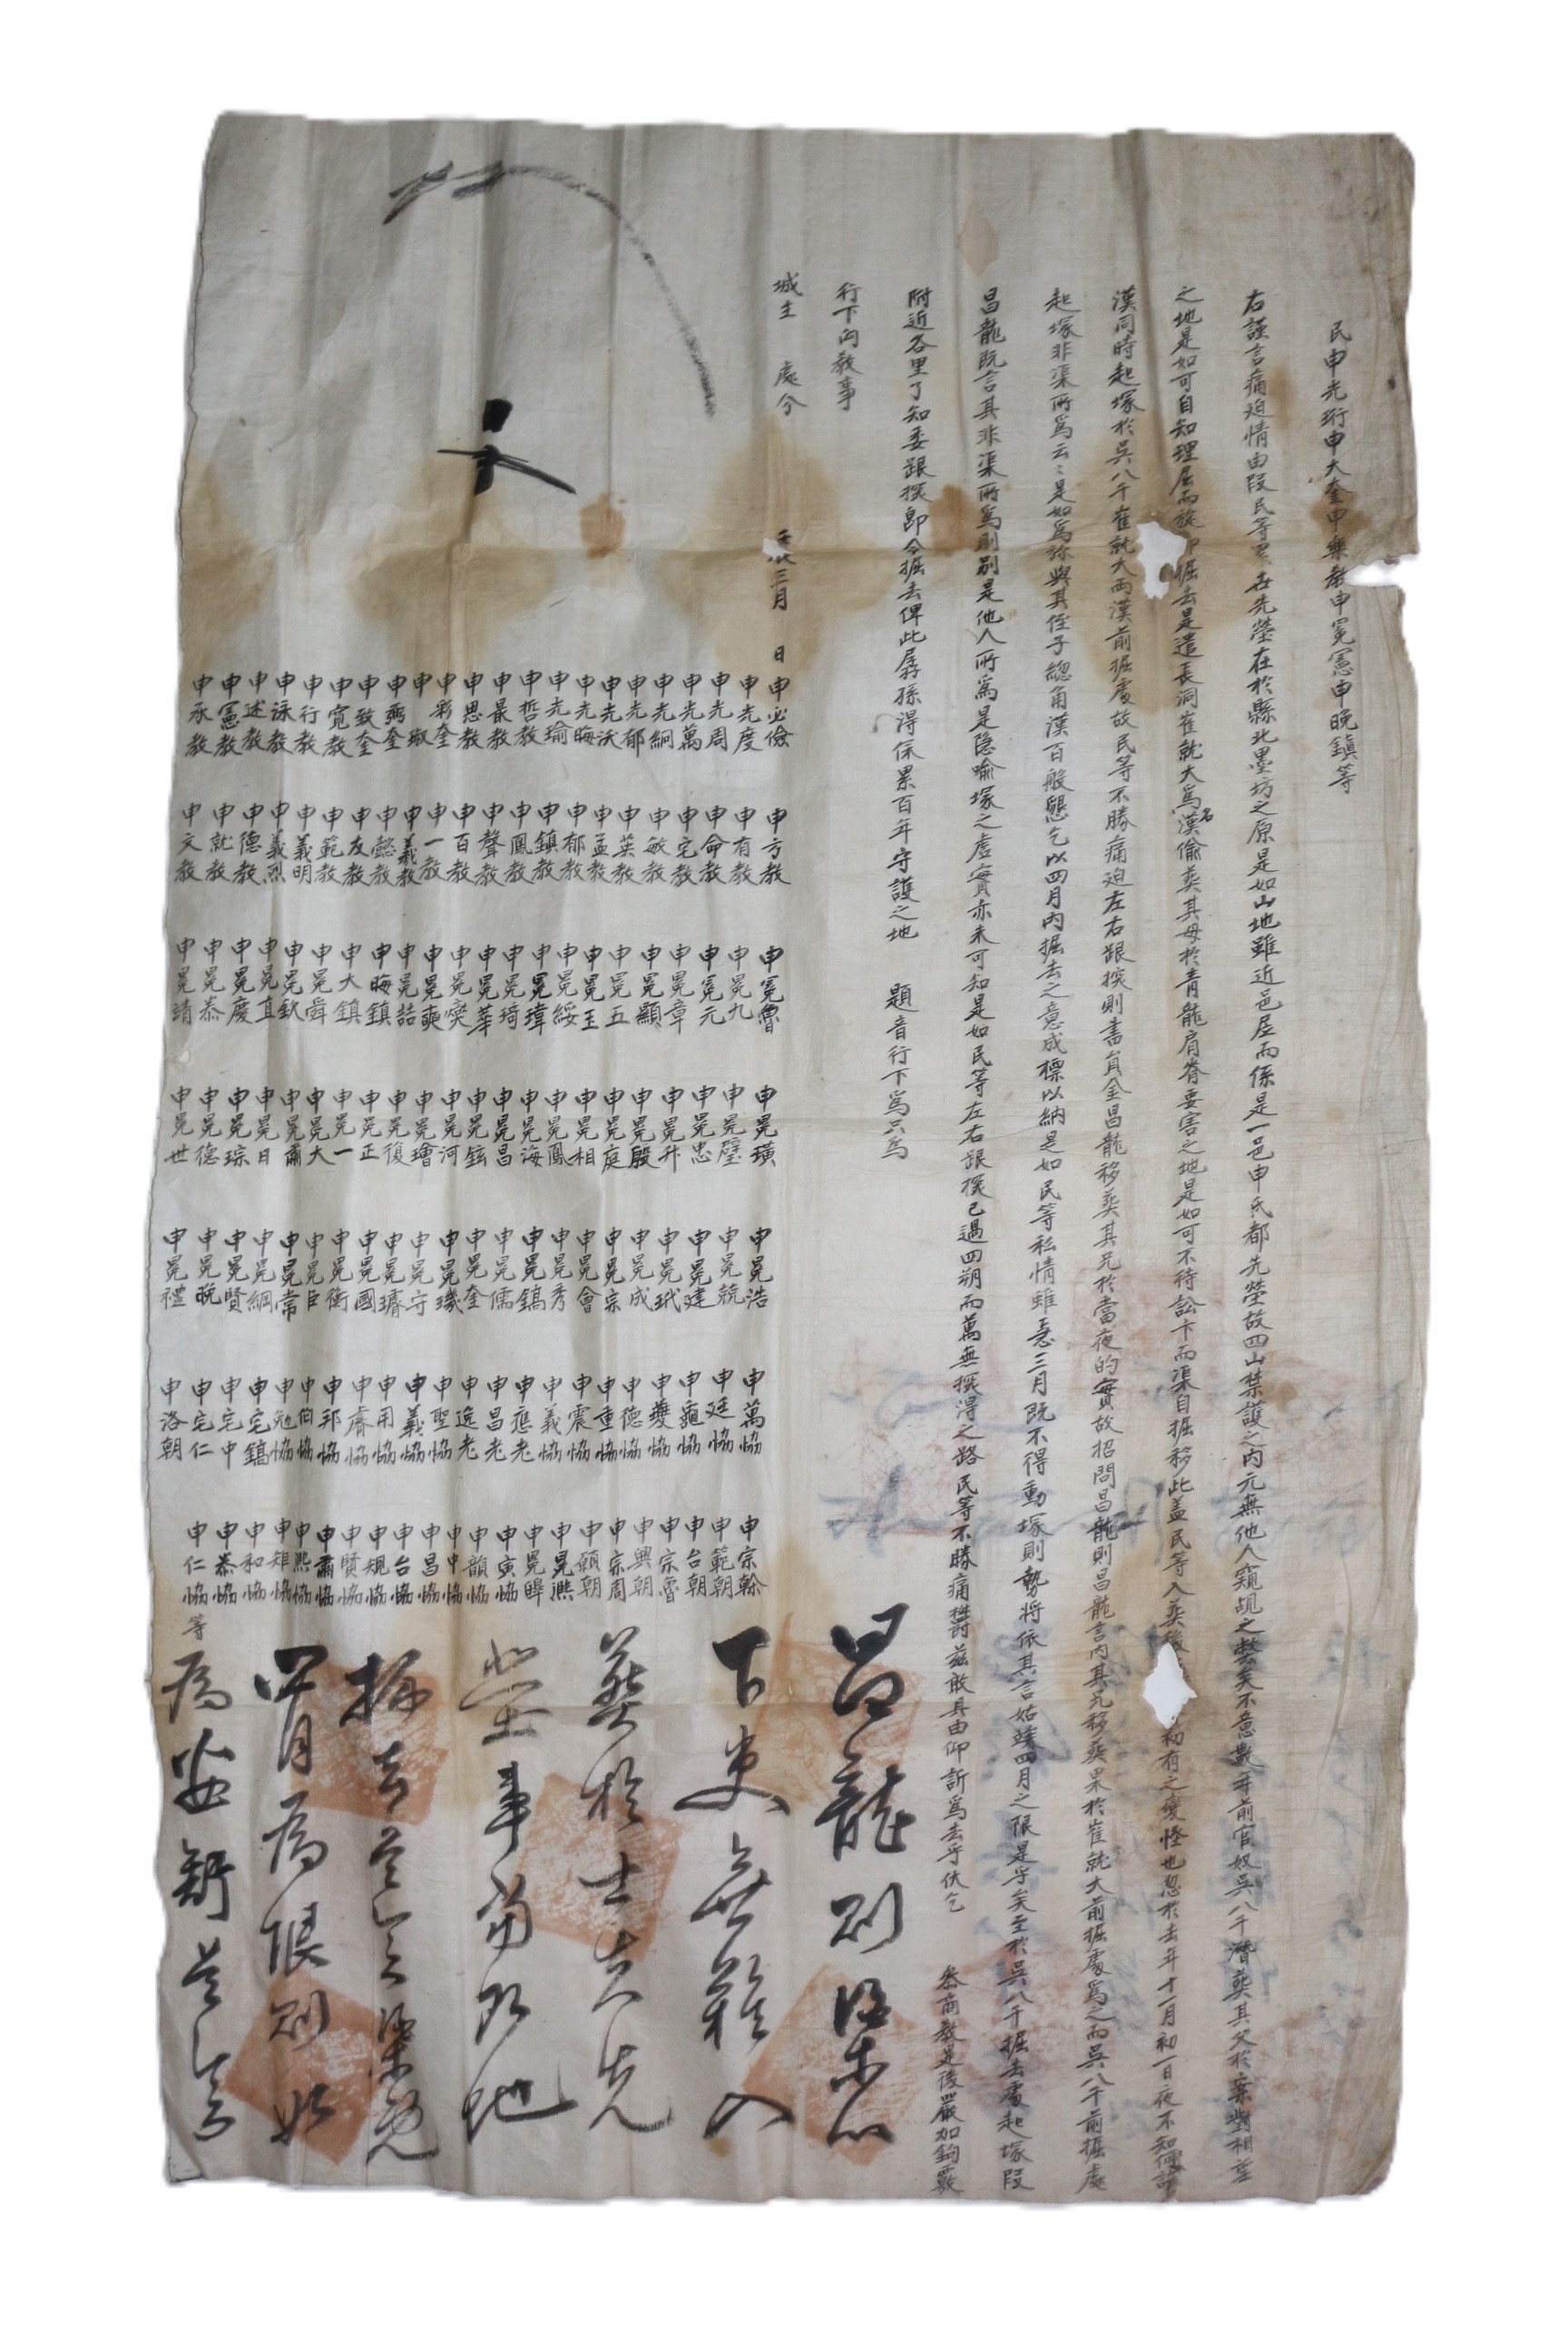 民申光珩申大奎申樂教申冕憲申晩鎮等
右謹言痛迫情由段民等累世先塋在於縣北墨坊之原是如山地雖近邑居而係是一邑申氏都先塋故四山禁護之內元無他人窺覘之弊矣不意數年前官奴吳八千潛葬其父於案對相望
之地是如可自知理屈而旋即掘去是遣長洞崔就大爲名漢偷葬其母於青龍肩脊要害之地是如可不待訟卞而渠自掘移此盖民等入葬後初有之變怪也忽於去年十一月初一日夜不知何許
漢同時起塚於吳八千崔就大兩漢前掘處故民等不勝痛迫左右跟探則書員金昌龍移葬其兄於當夜的實故招問昌龍則昌龍言內其兄移葬果於崔就大前掘處爲之而吳八千前掘處
起塚非渠所爲云々是如爲旀與其侄子總角漢百般懇乞以四月內掘去之意成標以納是如民等私情雖急三月既不得動塚則勢將依其言姑竢四月之限是乎矣至於吳八千掘去處起塚段
昌龍既言其非渠所爲則別是他人所爲是隐喻塚之虛實亦未可知是如民等左右跟探已過四朔而萬無探得之路民等不勝痛欝玆敢具由仰訴爲去乎伏乞 叅商教是後嚴加鉤覈
附近各里了知委跟探卽令掘去俾此孱孫得保累百年守護之地 題音行下爲只爲
行下向教事
城主 處分
三月 日
申必儉 申光度 申光周 申光萬 申光絅 申光郁 申光沃 申光晦 申光瑜 申哲教 申最教 申思教 申彩奎 申琡 申弼奎 申致奎 申寬教 申行教 申泳教 申述教 申憲教 申承教
申方教 申有教 申命教 申宅教 申敏教 申英教 申孟教 申郁教 申鎮教 申鳳教 申聲教 申百教 申一教 申義教 申懿教 申友教 申範教 申義明 申義烈 申德教 申就教 申文教
申冕魯 申冕九 申冕元 申冕章 申冕顯 申冕五 申冕玉 申冕綏 申冕瑋 申冕琦 申冕華 申冕燮 申冕奭 申冕喆 申晦鎮 申大鎮 申冕舜 申冕欽 申冕直 申冕慶 申冕泰 申冕靖
申冕璜 申冕璧 申冕忠 申冕升 申冕殷 申冕庭 申冕相 申冕鳳 申冕海 申冕昌 申冕鉉 申冕河 申冕璯 申冕復 申冕正 申冕一 申冕大 申冕肅 申冕日 申冕琮 申冕德 申冕世
申冕浩 申冕兢 申冕建 申冕玳 申冕成 申冕宗 申冕會 申冕秀 申冕鎬 申冕儒 申冕奎 申冕璣 申冕守 申冕璿 申冕國 申冕衡 申冕臣 申冕常 申冕綱 申冕賢 申冕晩 申冕禮
申萬協 申廷協 申龜協 申夔協 申德協 申重協 申震協 申義協 申應老 申昌老 申逸老 申聖協 申義協 申用協 申膺協 申邦協 申伯協 申勉協 申宅鎬 申宅中 申宅仁 申洛朝
申宗翰 申範朝 申台朝 申宗魯 申興朝 申宗周 申顯朝 申冕熙 申冕皡 申寅協 申韻協 申中協 申昌協 申台協 申規協 申賢協 申肅協 申熙協 申矩協 申和協 申泰協 申仁協 等
昌龍則
下吏無難入
葬於士夫先
塋事甚
掘去是
四月爲限則
爲